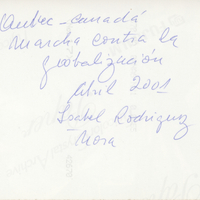 Quebec - Canadá
Marcha contra la
globalización
Abril 2001
Isabel Rodriguez
Mora